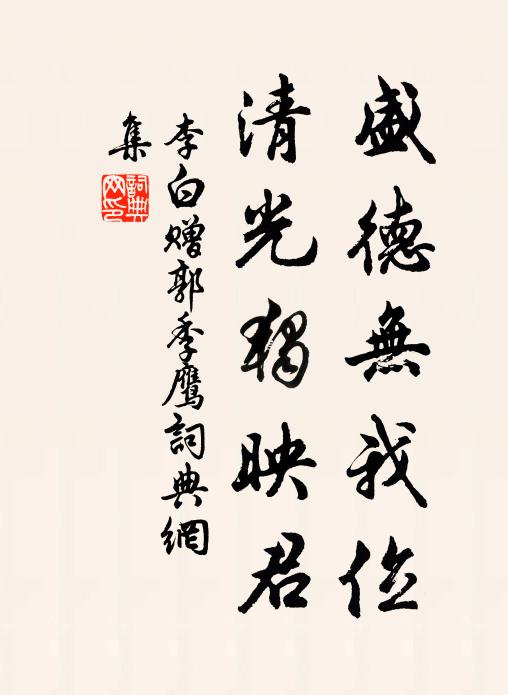 盛德無我位
清光獨映君
李白贈郭季鷹詞典網
集
詞典网印